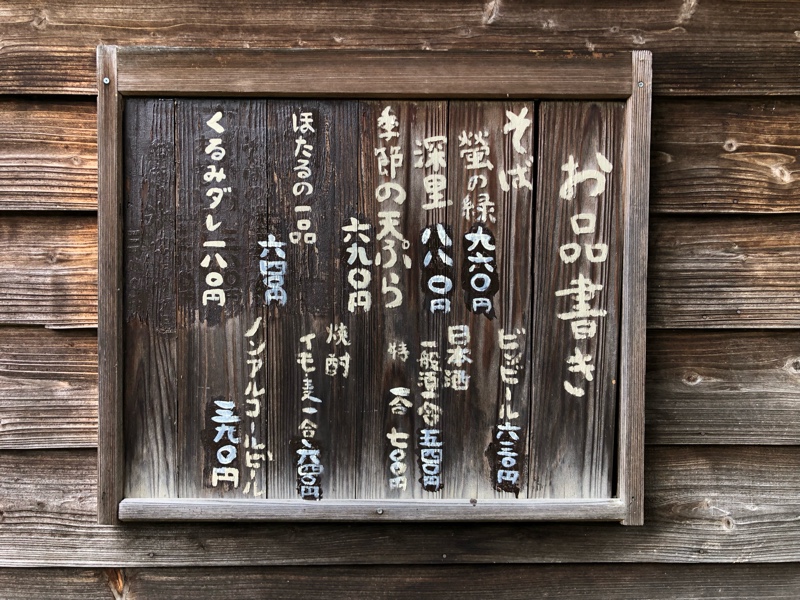 お品書き
そば
螢の緑 九六〇円
深里 八八〇円
季節の天ぷら
六九〇円
ほたるの一品
六四〇円
くるみダレ 一八〇円
ビンビール 六三〇円
日本酒
一般酒一合 五四〇円
特 一合 七〇〇円
焼酎
イモ・麦 一合 六四〇円
ノンアルコールビール
三九〇円